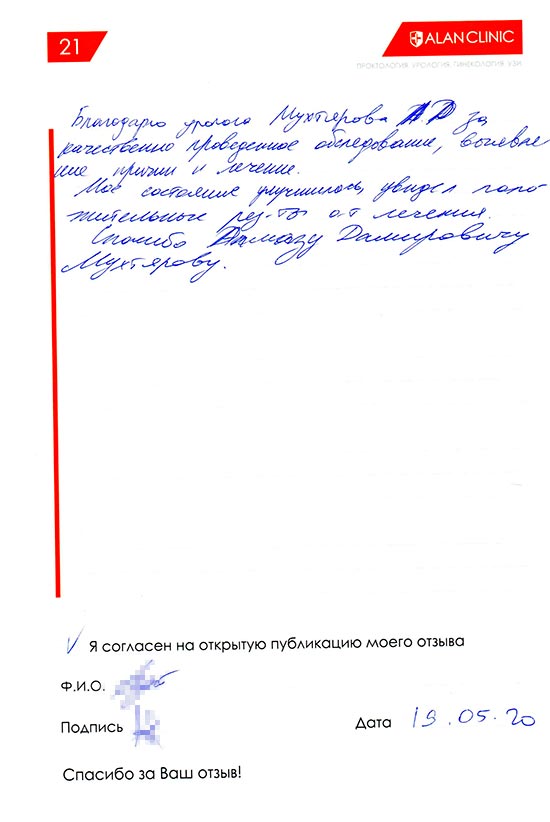 21
ALAN CLINIC
ПРОКТОЛОГИЯ. УРОЛОГИЯ. ГИНЕКОЛОГИЯ. УЗИ
Благодарю уролога Мухтярова А Д за
качественно проведенное обследование, выявле
ние причин и лечение.
Мое состояние улучшилось, увидел поло
жительные рез-ты от лечения.
Спасибо Алмазу Дамировичу
Мухтярову.
V Я согласен на открытую публикацию моего отзыва
Ф.И.О.
Подпись
Дата 19.05.20
Спасибо за Ваш отзыв!